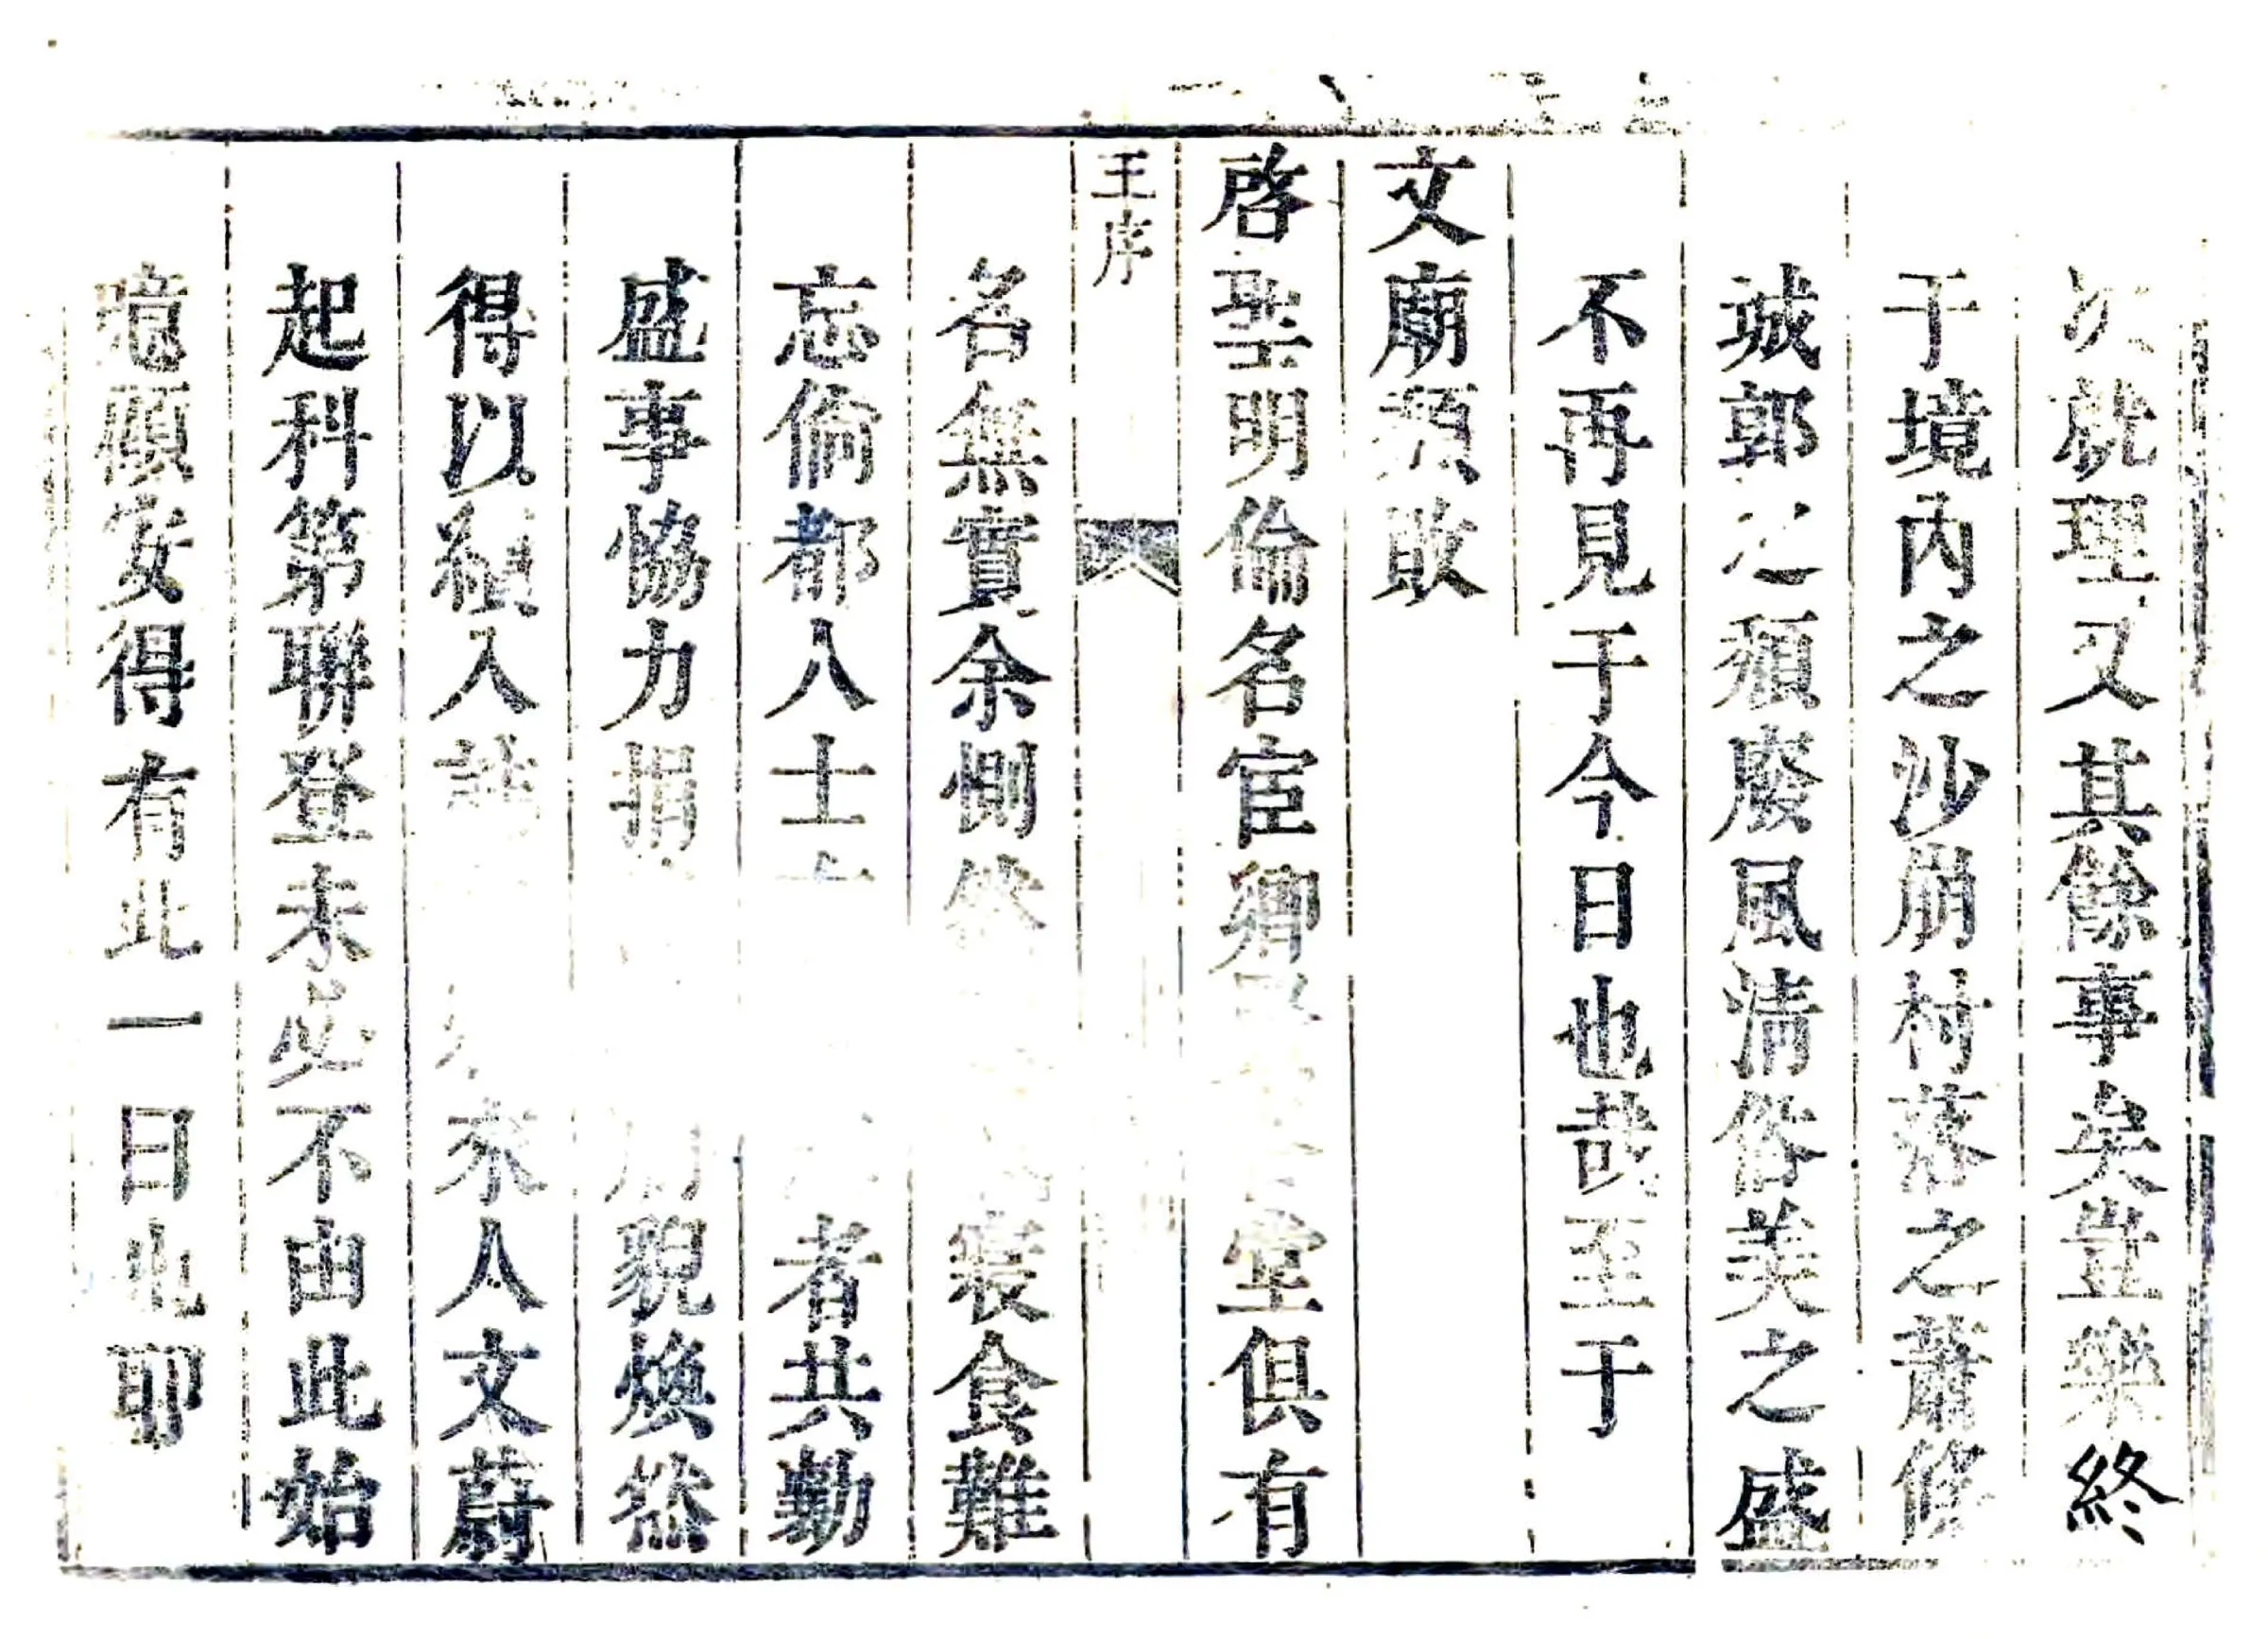 次就理又其餘事矣豈樂終
于境內之沙崩村落之蕭條
城郭之頹廢風淸俗美之盛
不再見于今日也哉至于
文廟頹敗
啓聖明倫名宦鄉堂俱有
王序
名無實余惻然裳食難
忘倫都人士者共勷
盛事恊力捐廟貌煥然
得以類入人文蔚
起科第聯登未必不由此始
噫顧安得有此一日也耶